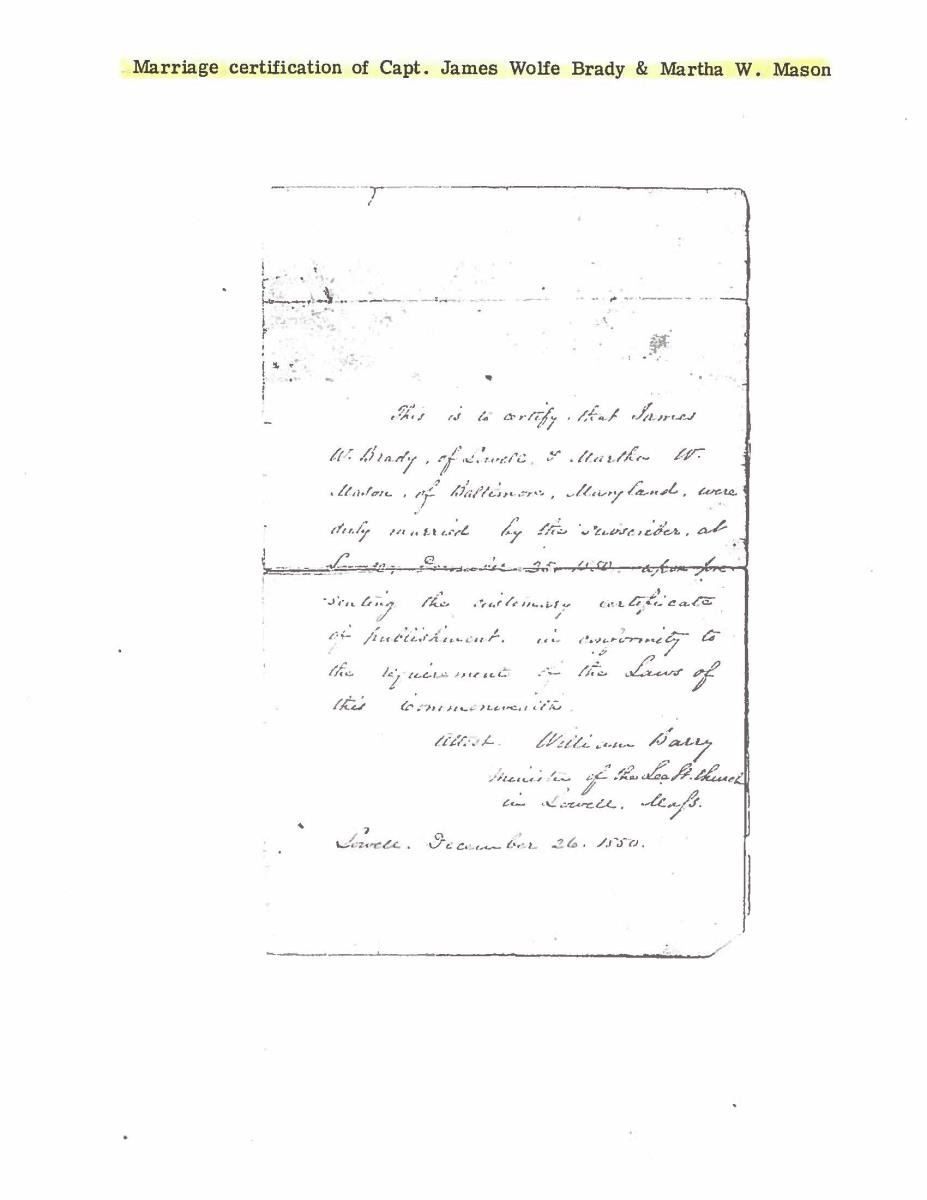 Marriage certification of Capt. James Wolfe Brady & Martha W. Mason
This is to certify, that James
W. Brady, of Lowell, & Martha W.
Mason, of Baltimore, Maryland, were
duly married by the subscriber, at
Lowell, December 25, 1850, upon pre-
senting the customary certificate
of publishment, in conformity to
the requirement of the Laws of
this Commonwealth.
Attest. William Barry
Minister of the Lee St. Church
in Lowell, Mass.
Lowell. December 26. 1850.